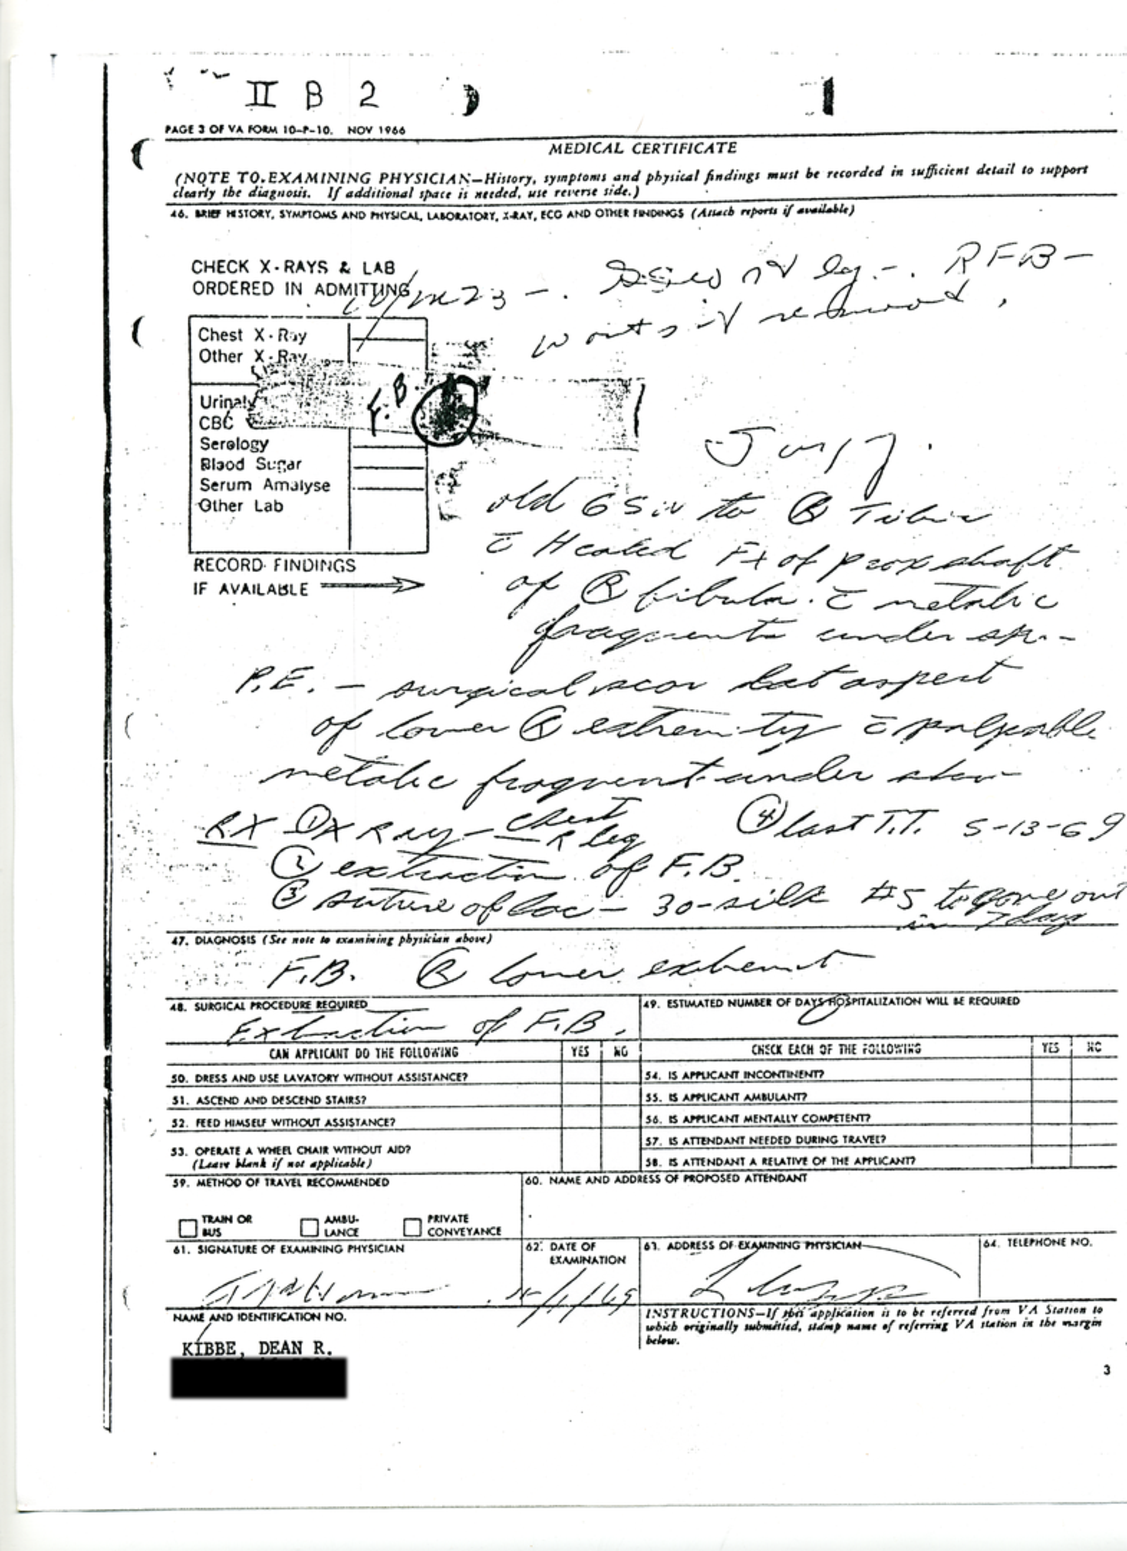 II B 2
PAGE 3 OF VA FORM 10-P-10. NOV 1966
MEDICAL CERTIFICATE
(NOTE TO EXAMINING PHYSICIAN—History, symptoms and physical findings must be recorded in sufficient detail to support
clearly the diagnosis. If additional space is needed, use reverse side.)
46. BRIEF HISTORY, SYMPTOMS AND PHYSICAL, LABORATORY, X-RAY, ECG AND OTHER FINDINGS (Attach reports if available)
CHECK X-RAYS & LAB
ORDERED IN ADMITTING
leg - . RFB -
wants it removed.
Chest X-Ray
Other X-Ray
F.B
Urinaly
CBC
Serology
Blood Sugar
Serum Amalyse
Other Lab
RECORD FINDINGS
IF AVAILABLE
old GSW to Ⓡ Tibia
c̄ Healed Fx of prox shaft
of Ⓡ fibula. c̄ metalic
fragment under
P.E. - surgical scar lat aspect
of lower Ⓡ extremity c̄ palpable
metalic fragment under
RX ① X Ray - chest
R leg
④ last T.T. 5-13-69
② extraction of F.B.
③ suture of lac - 30-silk #5 to gove out
in 7 day
47. DIAGNOSIS (See note to examining physician above)
F.B. Ⓡ lower extremit
48. SURGICAL PROCEDURE REQUIRED
Extraction of F.B.
49. ESTIMATED NUMBER OF DAYS HOSPITALIZATION WILL BE REQUIRED
CAN APPLICANT DO THE FOLLOWING YES NO
CHECK EACH OF THE FOLLOWING YES NO
50. DRESS AND USE LAVATORY WITHOUT ASSISTANCE?
54. IS APPLICANT INCONTINENT?
51. ASCEND AND DESCEND STAIRS?
55. IS APPLICANT AMBULANT?
52. FEED HIMSELF WITHOUT ASSISTANCE?
56. IS APPLICANT MENTALLY COMPETENT?
53. OPERATE A WHEEL CHAIR WITHOUT AID?
(Leave blank if not applicable)
57. IS ATTENDANT NEEDED DURING TRAVEL?
58. IS ATTENDANT A RELATIVE OF THE APPLICANT?
59. METHOD OF TRAVEL RECOMMENDED
60. NAME AND ADDRESS OF PROPOSED ATTENDANT
TRAIN OR
BUS
AMBU-
LANCE
PRIVATE
CONVEYANCE
61. SIGNATURE OF EXAMINING PHYSICIAN
62. DATE OF
EXAMINATION
63. ADDRESS OF EXAMINING PHYSICIAN
64. TELEPHONE NO.
NAME AND IDENTIFICATION NO.
INSTRUCTIONS—If this application is to be referred from VA Station to
which originally submitted, stamp name of referring VA station in the margin
below.
KIBBE, DEAN R.
3